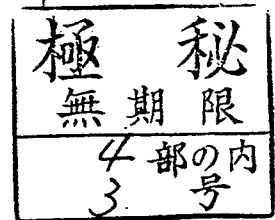 極秘
無期限
4部の内
3号